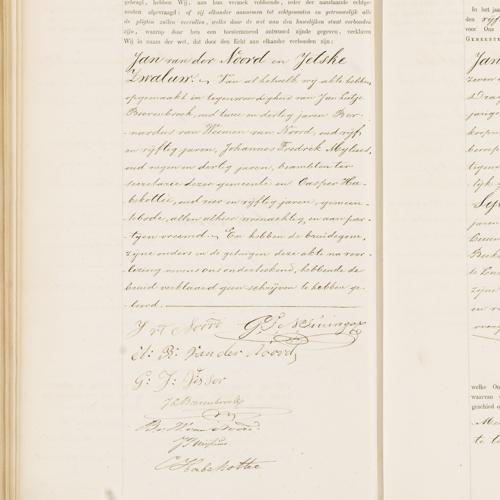 gevraagd, hebben Wij, aan hun verzoek voldoende, ieder der aanstaande echtge-
nooten afgevraagd: of zij elkander aannemen tot echtgenooten en getrouwelijk alle
de pligten zullen vervullen, welke door de wet aan den huwelijken staat verbonden
zijn, waarop door hen een toestemmend antwoord zijnde gegeven, verklaren
Wij in naam der wet, dat door den Echt aan elkander verbonden zijn:
Jan van der Noord en Jelske
Zwalaw. Van al hetwelk wij akte hebben
opgemaakt in tegenwoordigheid van Jan
Boerenbroek, oud twee en dertig jaren, Ber-
nardus van Weemen van Noord, oud vijf
en vijftig jaren, Johannes Fredrik
oud negen en dertig jaren, beambten ter
secretarie dezer gemeente en Casper Ha-
bekotte, oud vier en vijftig jaren, gemeen-
tebode, allen alhier woonachtig, en aan par-
tijen vreemd. En hebben de bruidegom,
zijne ouders en de getuigen deze akte na voor-
lezing nevens ons onderteekend, hebbende de
bruid verklaard geen schrijven te hebben ge-
leerd.
J vd Noord
R: Van der Noord
G: J: Visser
C Habekotte
In het jaar
den vijf
voor Ons
GEMEENTE
Jan
zeven
jarige
koopm
beroep
tegen
lijk
Sep
jaren
zijne
en va
welke On
waarvan
geschied o